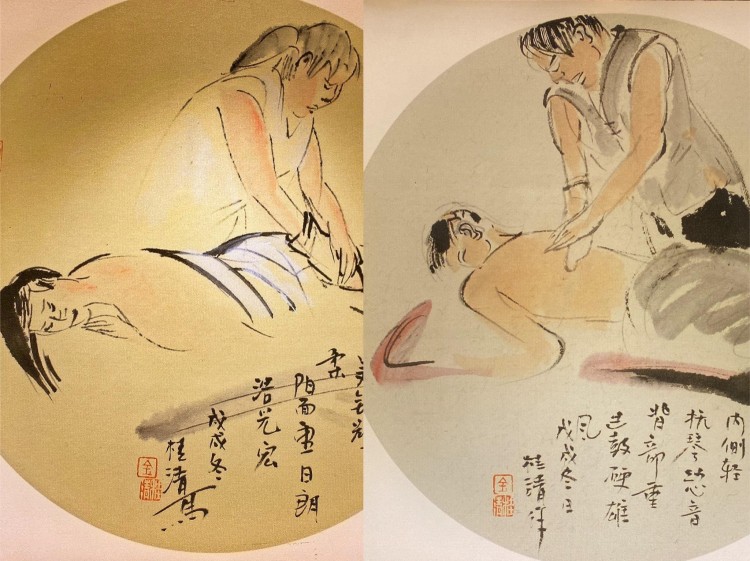 柔
阳面重日朗
浩光宏
戊戌冬
桂清写
内侧轻
抚琴悠音
背部重
击鼓硬雄
风
戊戌冬日
桂清